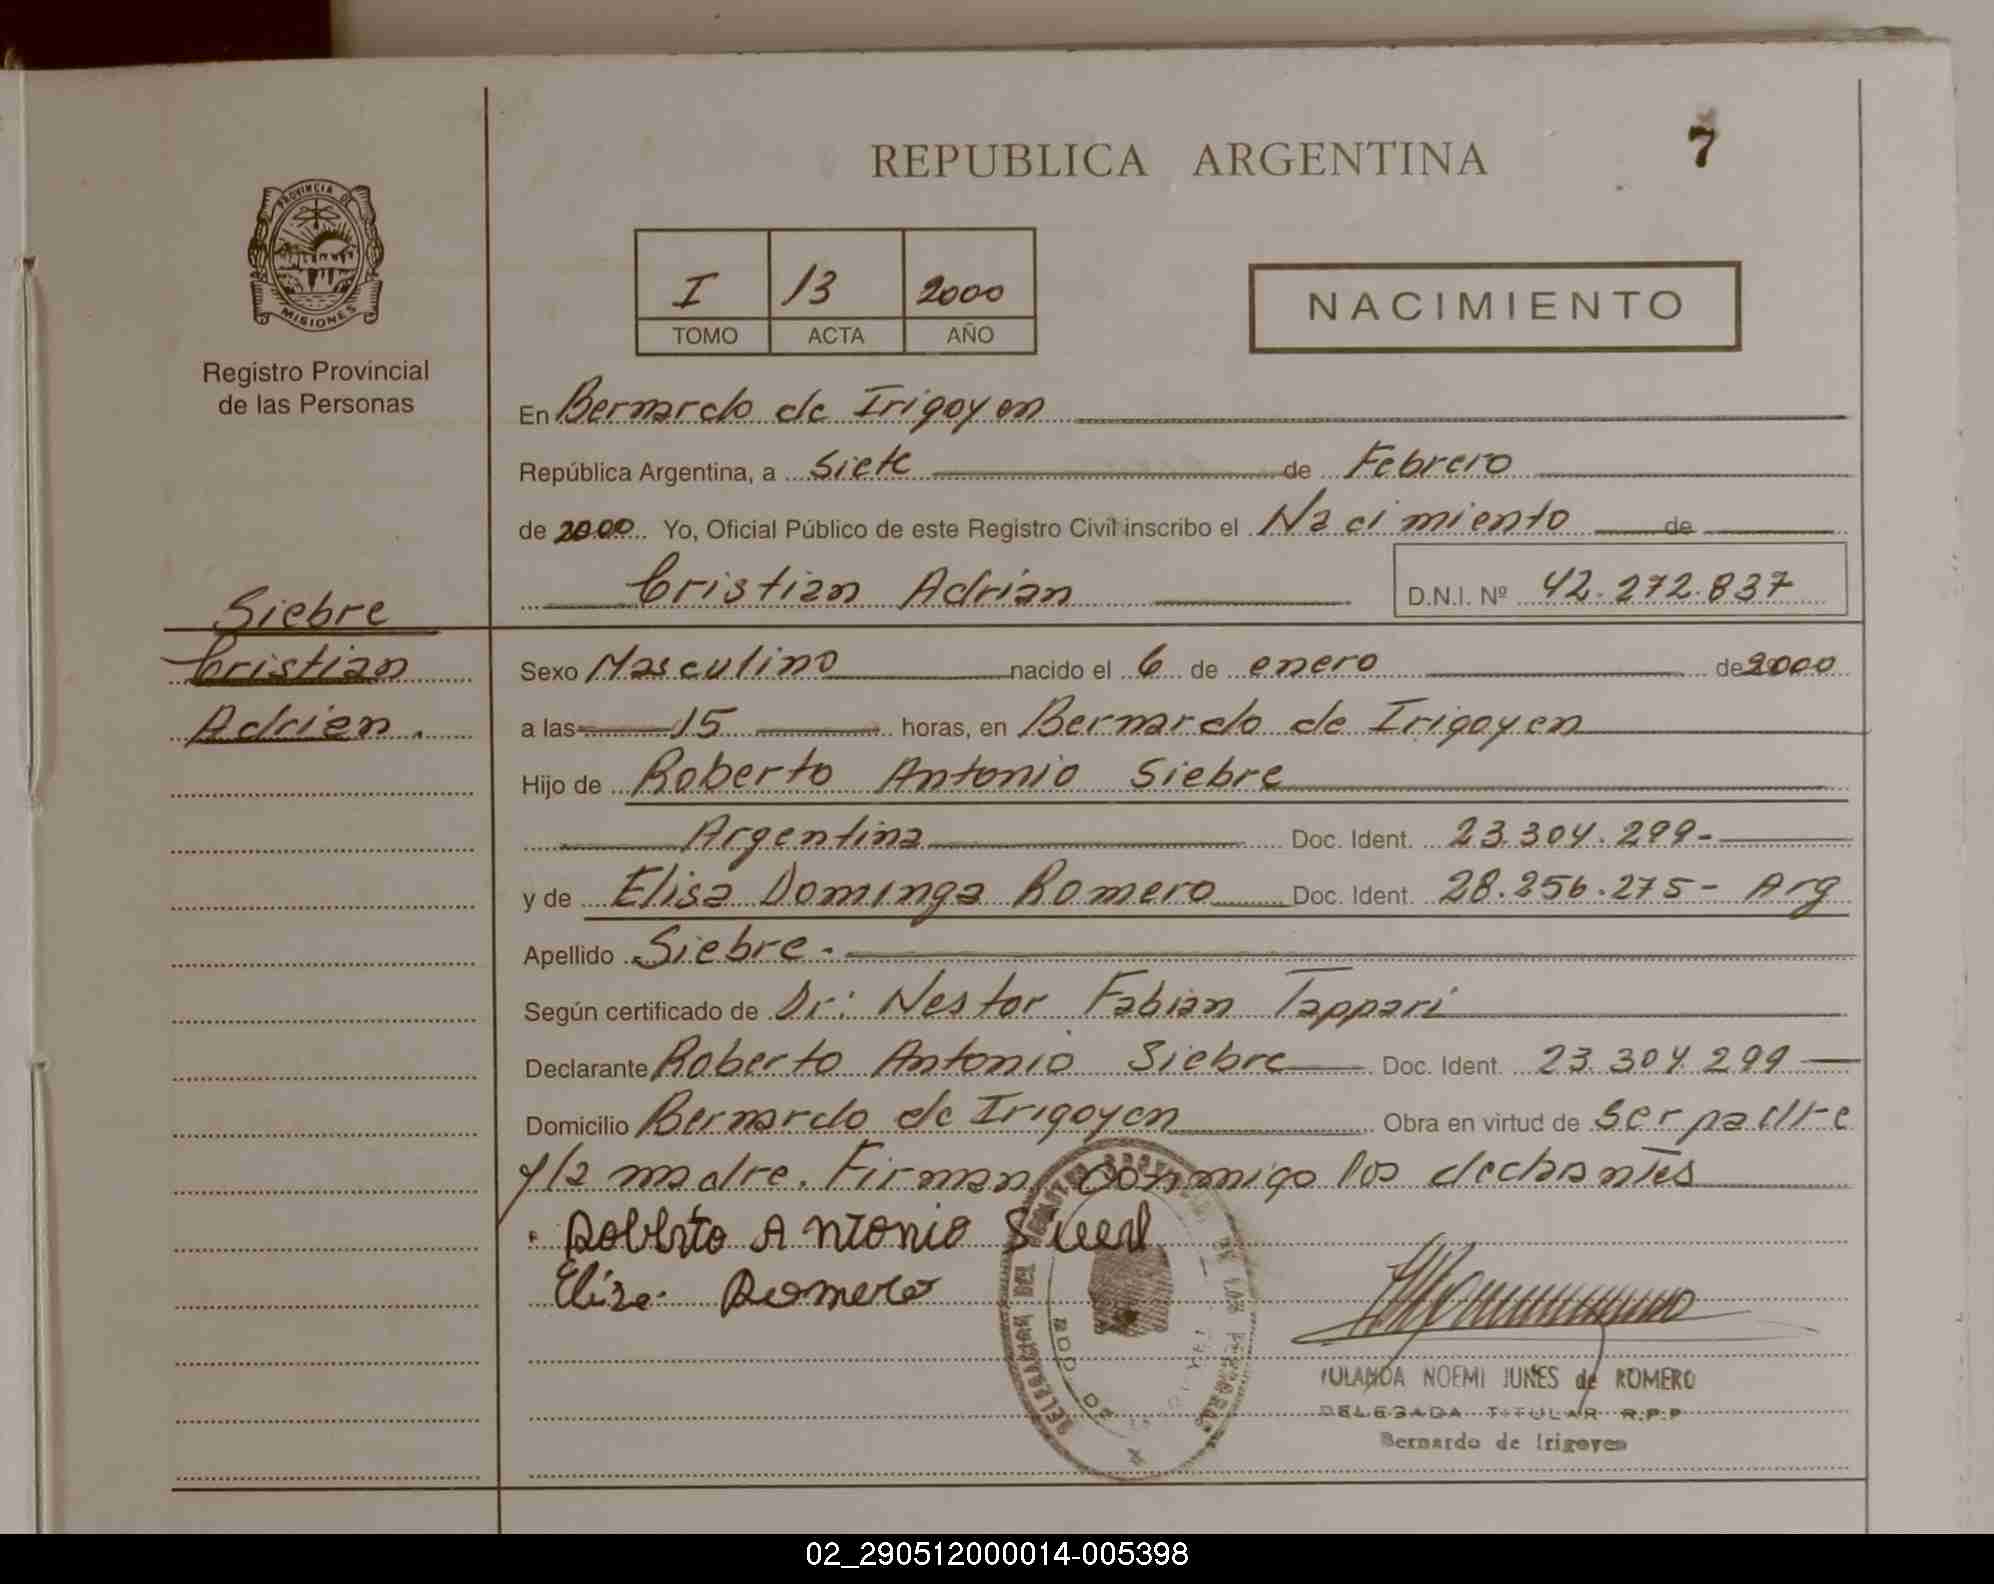 7
REPUBLICA ARGENTINA
PROVINCIA DE
MISIONES
Registro Provincial
de las Personas
I 13 2000
TOMO ACTA AÑO
NACIMIENTO
En Bernardo de Irigoyen
República Argentina, a Siete de Febrero
de 2000 Yo, Oficial Público de este Registro Civil inscribo el Nacimiento de
Cristian Adrián D.N.I. Nº 42.272.837
Siebre
Cristian
Adrien.
Sexo Masculino nacido el 6 de enero de 2000
a las 15 horas, en Bernardo de Irigoyen
Hijo de Roberto Antonio Siebre
Argentina Doc. Ident. 23.304.299-
y de Elisa Dominga Romero Doc. Ident. 28.256.275- Arg
Apellido Siebre.
Según certificado de Dr: Nestor Fabian Tappari
Declarante Roberto Antonio Siebre Doc. Ident. 23.304.299
Domicilio Bernardo de Irigoyen Obra en virtud de Ser padre
y la madre. Firman conmigo los
Roberto Antonio
Romero
NOEMI JUNES de ROMERO
DELEGADA TITULAR R.P.P
Bernardo de Irigoyen
02_290512000014-005398